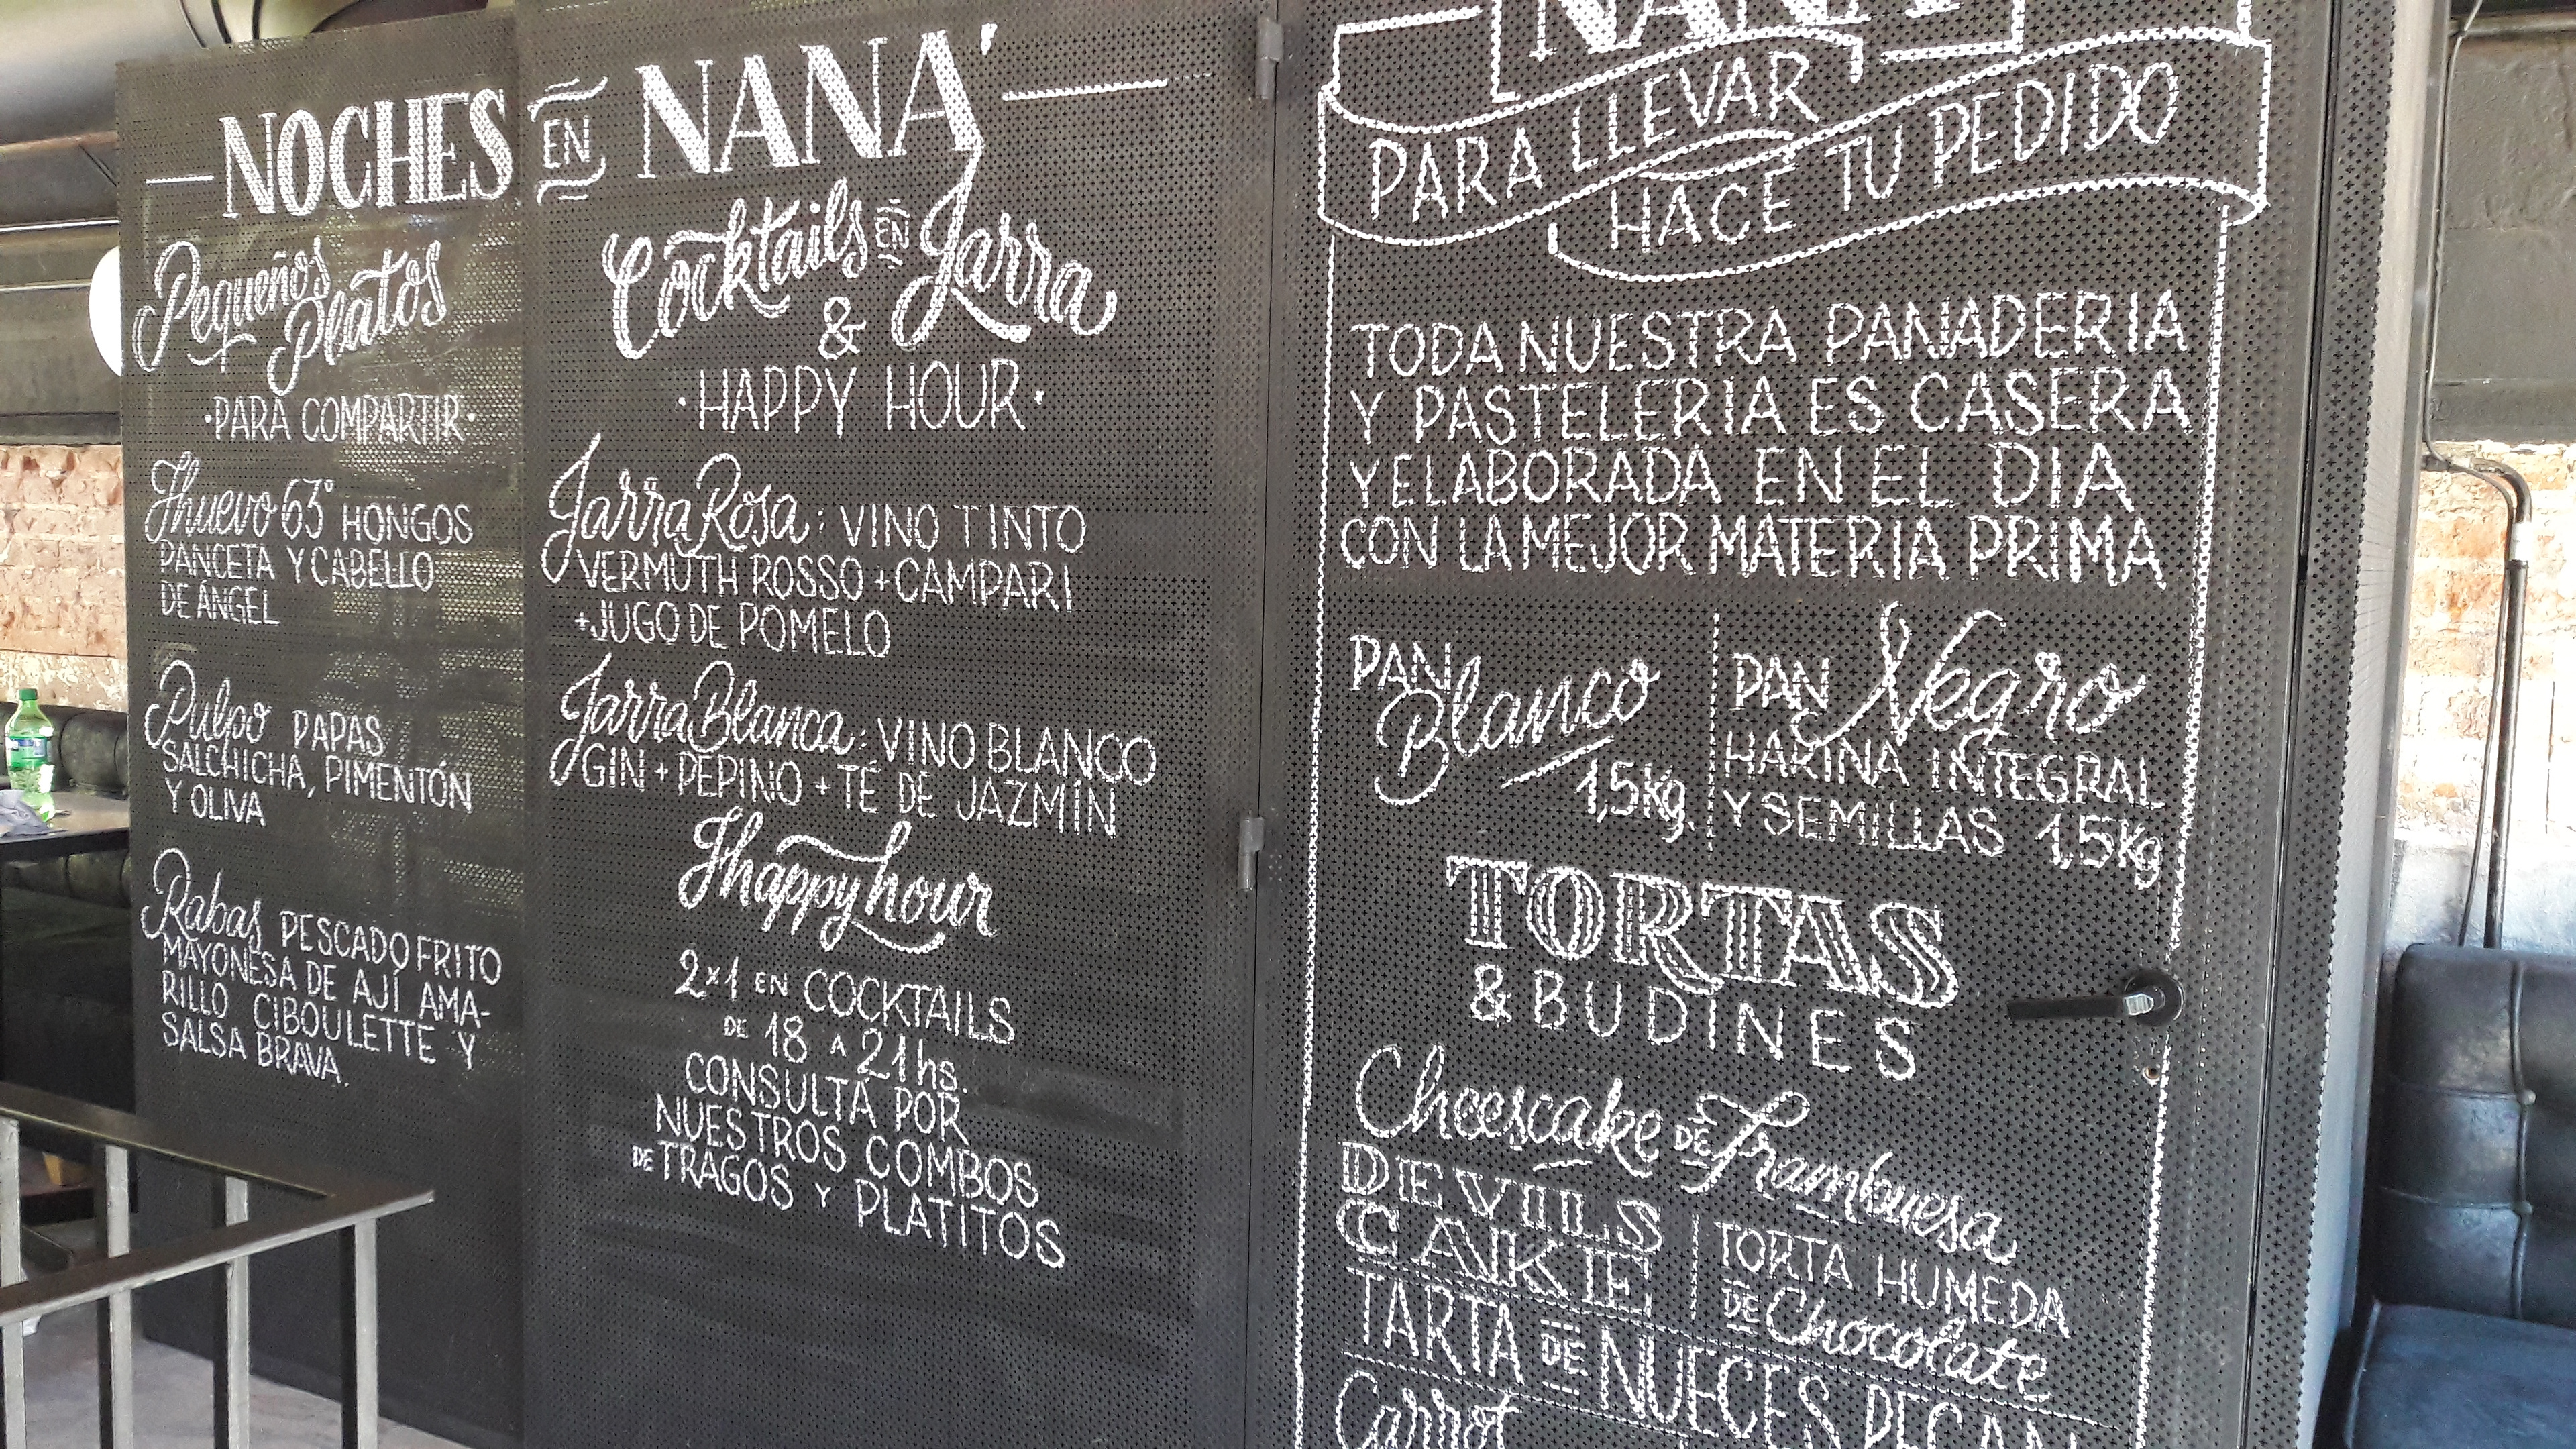 NOCHES EN NANÁ
Pequeños
Platos
·PARA COMPARTIR·
Huevo 63° HONGOS
PANCETA Y CABELLO
DE ÁNGEL
Pulpo PAPAS
SALCHICHA, PIMENTÓN
Y OLIVA
Rabas PESCADO FRITO
MAYONESA DE AJÍ AMA-
RILLO CIBOULETTE Y
SALSA BRAVA.
Cocktails EN Jarra
&
·HAPPY HOUR·
Jarra Rosa: VINO TINTO
VERMUTH ROSSO + CAMPARI
+ JUGO DE POMELO
Jarra Blanca: VINO BLANCO
GIN + PEPINO + TÉ DE JAZMÍN
Happy hour
2x1 EN COCKTAILS
DE 18 A 21hs.
CONSULTÁ POR
NUESTROS COMBOS
DE TRAGOS Y PLATITOS
PARA LLEVAR
HACÉ TU PEDIDO
TODA NUESTRA PANADERIA
Y PASTELERIA ES CASERA
Y ELABORADA EN EL DIA
CON LA MEJOR MATERIA PRIMA
PAN
Blanco
1,5kg.
PAN Negro
HARINA INTEGRAL
Y SEMILLAS 1,5kg
TORTAS
& BUDINES
Cheescake DE Frambuesa
DEVILS
CAKE
TORTA HUMEDA
DE Chocolate
TARTA DE NUECES PECAN
Carrot